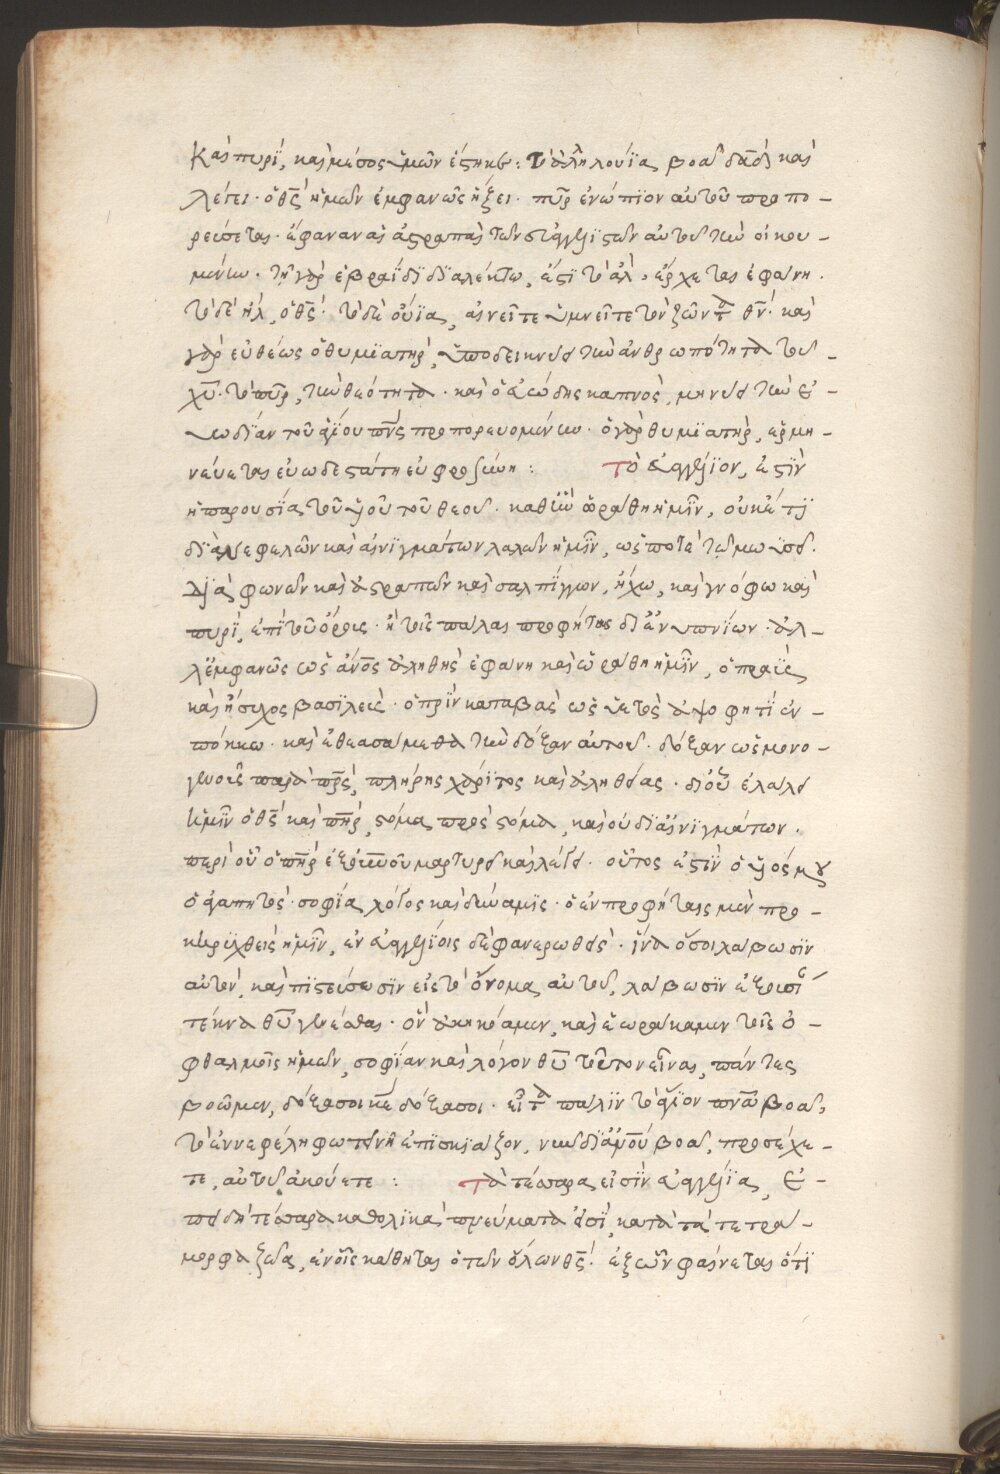 καὶ πυρὶ, καὶ μέσος ὑμῶν ἕστηκεν: τὸ ἀλληλούϊα, βοᾶ δᾱδ̀ καὶ
λέγει· ὁ θς̄ ἡμῶν ἐμφανῶς ἥξει· πῦρ ἐνώπϊον αὐτοῦ προπο-
ρεύσεται· ἔφαναν αἱ ἀστραπαὶ τῶν εὐαγγελϊστῶν αὐτοῦ τὴν οἰκου-
μένην· τῆ γὰρ ἑβραΐδϊ δϊαλέκτω, ἐστὶ τὸ ἀλ, ἔρχεται ἐφάνη·
τὸ δὲ ἠλ, ὁ θς̄· τὸ δὲ οὐϊα, αἰνεῖτε ὑμνεῖτε τὸν ζῶντα θν̄· καὶ
γὰρ εὐθέως ὁ θυμϊατὴρ, ὑποδεικνύει τὴν ἀνθρωπότητα τοῦ
χῡ· τὸ πῦρ, τὴν θεότητα· καὶ ὁ εὐώδης καπνὸς, μηνύει τὴν εὐ-
ωδίαν τοῦ ἁγίου πνς̄ προπορευομένην· ὁ γὰρ θυμϊατὴρ, ἑρμη-
νεύεται εὐωδεστάτη εὐφροσύνη: Τὸ εὐαγγέλϊον, ἐστὶν
ἡ παρουσία τοῦ υἱοῦ τοῦ θεοῦ· καθ' ἣν ὡράθη ἡμῖν, οὐκέτϊ
δϊὰ νεφελῶν καὶ αἰνϊγμάτων λαλῶν ἡμῖν, ὥς ποτε τῶ μωυσεῖ·
Δϊὰ φωνῶν καὶ ἀστραπῶν καὶ σαλπίγγων, ἤχω, καὶ γνόφω καὶ
πυρὶ, ἐπὶ τοῦ ὄρους· ἢ τοῖς πάλαι προφήταις δι' ἐνυπνίων· ἀλ-
λ' ἐμφανῶς ὡς ἄνο̄ς ἀληθὴς ἐφάνη καὶ ὡράθη ἡμῖν, ὁ πραῢς
καὶ ἥσυχος βασϊλεύς· ὁ πρὶν καταβὰς ὡς ὑετὸς ἀψοφητὶ ἐν
πόκκω· καὶ ἐθεασάμεθα τὴν δόξαν αὐτοῦ· δόξαν ὡς μονο-
γενοῦς παρὰ πρς̄, πλήρης χάρϊτος καὶ ἀληθείας· δι' οὗ ἐλάλει
ἡμῖν ὁ θς̄ καὶ πηρ̄, στόμα πρὸς στόμα, καὶ οὐ δι' αἰνϊγμάτων·
περὶ οὗ ὁ πηρ̄ ἐξ οὐνοῦ μαρτυρεῖ καὶ λέγει· οὗτος ἐστὶν ὁ υἱός μου
ὁ ἀγαπητὸς· σοφία, λόγος καὶ δύναμις· ὁ ἐν προφήταις μὲν προ-
κηρυχθεὶς ἡμῖν, ἐν εὐαγγελίοις δὲ φανερωθείς· ἵνα ὅσοι λάβωσϊν
αὐτὸν, καὶ πϊστεύσωσϊν εἰς τὸ ὄνομα αὐτοῦ, λάβωσϊν ἐξουσί
τέκνα θῡ γενέσθαι· ὃν ἀκηκόαμεν, καὶ ἑωράκαμεν τοῖς ὀ-
φθαλμοῖς ἡμῶν, σοφίαν καὶ λόγον θῡ τοῦτον εἶναι, πάντες
βοῶμεν, δόξα σοι κε̄ δόξα σοι· εἶτα πάλϊν τὸ ἅγϊον πνᾱ βοᾶ,
τὸ ἐν νεφέλη φωτεινῆ ἐπϊσκϊάζον, νῦν δϊ' ἀνοῦ βοᾶ, προσέχε-
τε, αὐτοῦ ἀκούετε: Τὰ τέσσαρα εἰσὶν εὐαγγέλϊα, ἐ-
πειδὴ τέσσαρα καθολϊκὰ πνεύματα εἰσὶ, κατὰ τὰ τετρά-
μορφα ζῶα, ἐν οἷς κάθηται ὁ τῶν ὅλων θς̄· ἐξ ὧν φαίνεται ὅτϊ